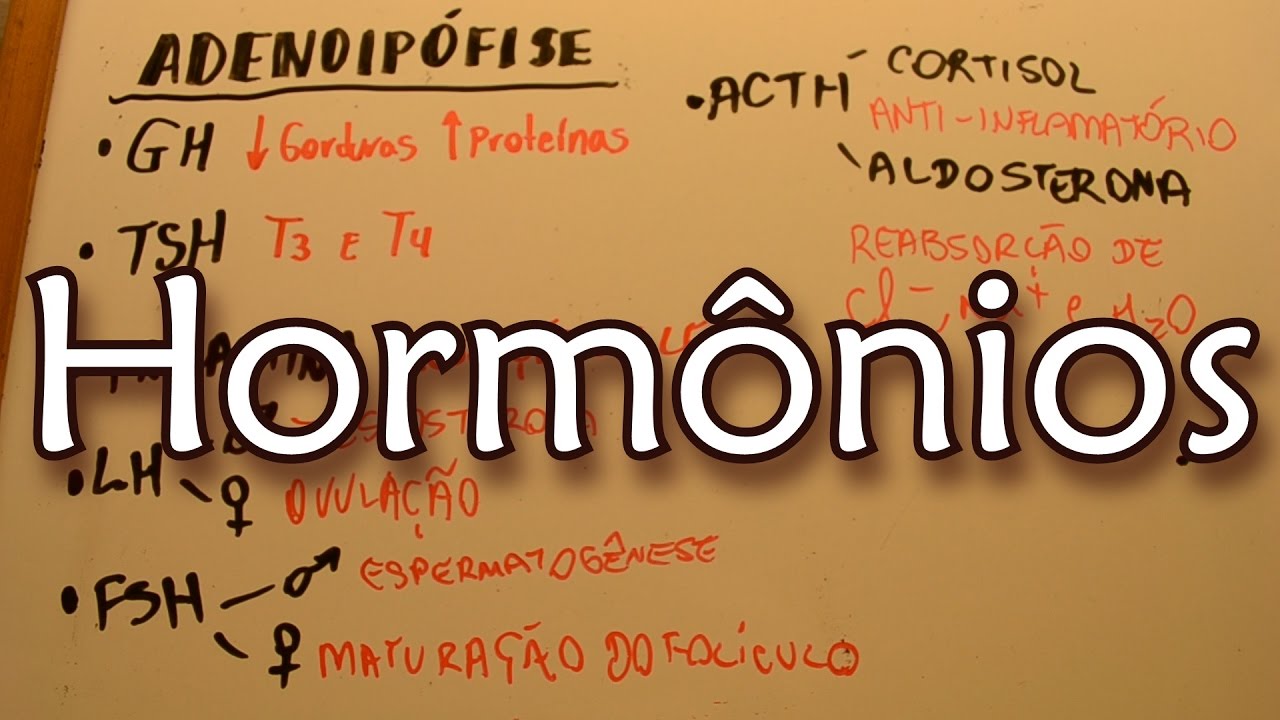 ADENOIPÓFISE
• GH ↓ Gorduras ↑ Proteínas
• TSH T3 E T4
• LH
♀ OVULAÇÃO
• FSH
♂ ESPERMATOGÊNESE
♀ MATURAÇÃO DO FOLÍCULO
• ACTH
CORTISOL
ANTI-INFLAMATÓRIO
ALDOSTERONA
REABSORÇÃO DE
Cl⁻, Na⁺ e H2O
Hormônios